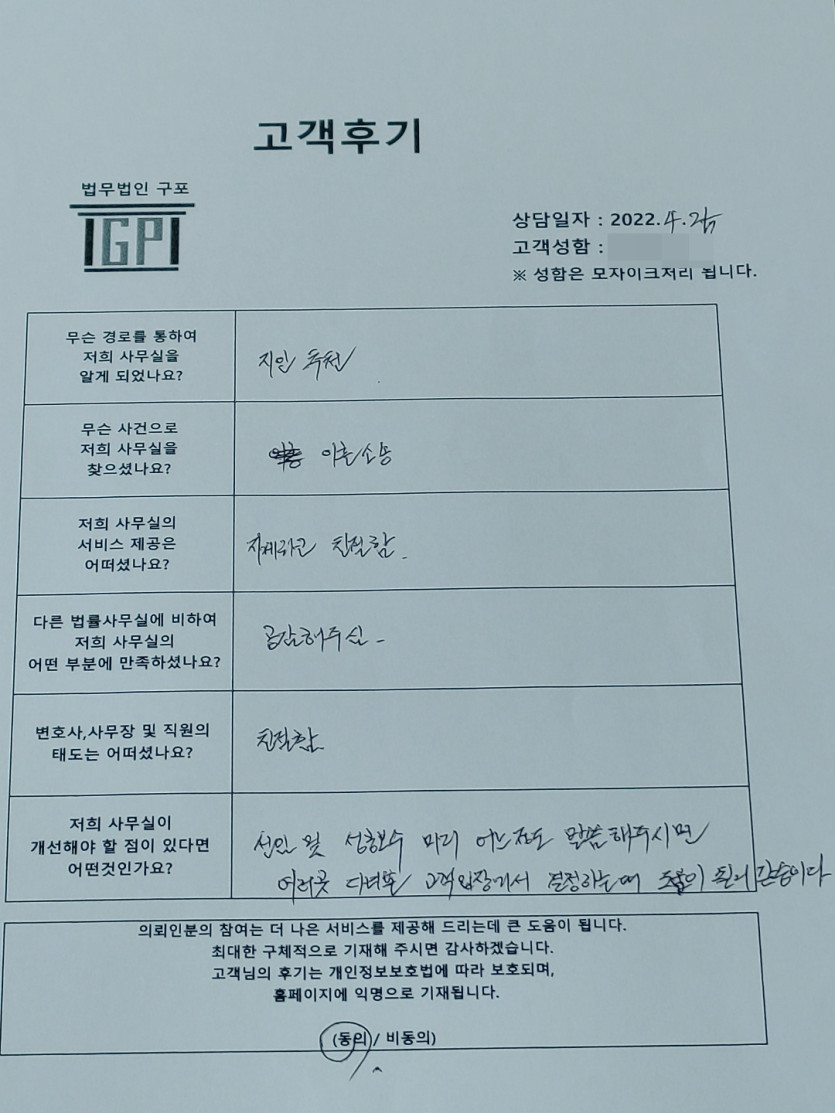 고객후기
법무법인 구포
IGPI
상담일자 : 2022.4.
고객성함 :
※ 성함은 모자이크저리 됩니다.
무슨 경로를 통하여
저희 사무실을
알게 되었나요?
지인 추천
무슨 사건으로
저희 사무실을
찾으셨나요?
이혼소송
저희 사무실의
서비스 제공은
어떠셨나요?
자세하고 친절함.
다른 법률사무실에 비하여
저희 사무실의
어떤 부분에 만족하셨나요?
공감해주심 -
변호사,사무장 및 직원의
태도는 어떠셨나요?
친절함.
저희 사무실이
개선해야 할 점이 있다면
어떤것인가요?
선임 및 성공보수 미리 어느정도 말씀해주시면
여러곳 다녀본 고객입장에서 결정하는데 도움이 될
의뢰인분의 참여는 더 나은 서비스를 제공해 드리는데 큰 도움이 됩니다.
최대한 구체적으로 기재해 주시면 감사하겠습니다.
고객님의 후기는 개인정보보호법에 따라 보호되며,
홈페이지에 익명으로 기재됩니다.
(동의 / 비동의)